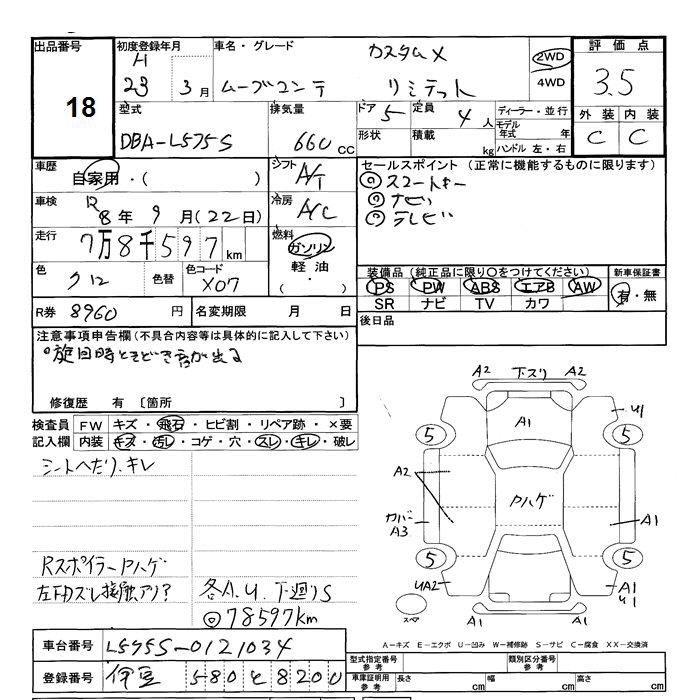 出品番号 初度登録年月 車名・グレード カスタムX 評価点
18
H 23 3月 ムーブコンテ リミテット 2WD 4WD 3.5
型式 排気量 ドア 5 定員 4人 ディーラー・並行 外装 内装
DBA-L575S 660cc 形状 積載 kg モデル年式 年 ハンドル 左・右 C C
車歴 自家用・( ) シフト A/T セールスポイント (正常に機能するものに限ります)
車検 8年9月(22日) 冷房 A/C
◎スマートキー
◎ナビ
◎テレビ
走行 7万8千597km 燃料 ガソリン 軽油・( )
色 クロ 色替 色コード X07
装備品(純正品に限り○をつけてください) 新車保証書
PS PW ABS エアB AW 有・無
SR ナビ TV カワ
R券 8960円 名変期限 月 日 後日品
注意事項申告欄(不具合内容等は具体的に記入して下さい)
旋回時ときどき音が出る
修復歴 有 〔箇所 〕
検査員記入欄 FW キズ・飛石・ヒビ割・リペア跡・×要
内装 キズ・汚レ・コゲ・穴・スレ・キレ・破レ
シートヘたり、キレ
Rスポイラー Pハゲ
各A.U 下廻りS
◎78597km
A2 下スリ A2
A1 U1
5 5
A2 Pハゲ
カバー A3 A1
5 5
UA2 A1 U1
スペア A1
A-キズ E-エクボ U-凹み W-補修跡 S-サビ C-腐食 XX-交換済
車台番号 L575S-0121034
登録番号 伊豆 580 そ 8200
型式指定番号 参考 類別区分番号 参考
車庫証明用 参考 長さ cm 幅 cm 高さ cm